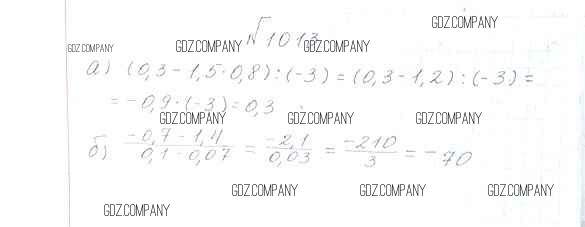 GDZ.COMPANY
№1013
GDZ.COMPANY GDZ.COMPANY GDZ.COMPANY
а) (0,3 - 1,5·0,8) : (-3) = (0,3 - 1,2) : (-3) =
= -0,9·(-3) = 0,3
GDZ.COMPANY GDZ.COMPANY GDZ.COMPANY
б) -0,7 - 1,4 / 0,1 - 0,07 = -2,1 / 0,03 = -210 / 3 = -70
GDZ.COMPANY GDZ.COMPANY GDZ.COMPANY
GDZ.COMPANY